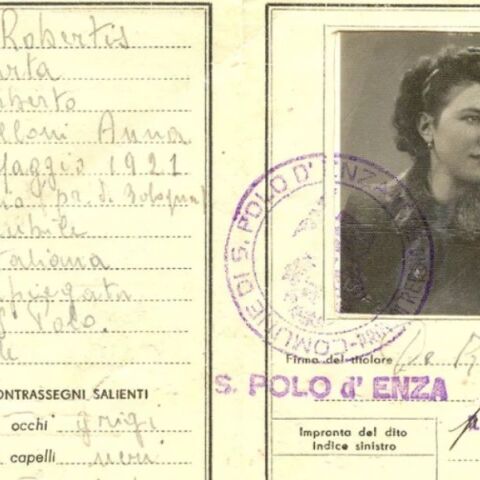 Robertis
rta
berto
lloni Anna
aggio 1921
(pr. di Bologna)
ubile
taliana
piegata
Polo.
ONTRASSEGNI SALIENTI
occhi grigi
capelli neri
COMUNE DI S. POLO D' ENZA
Firma del titolare De
S. POLO d' ENZA
Impronta del dito
indice sinistro